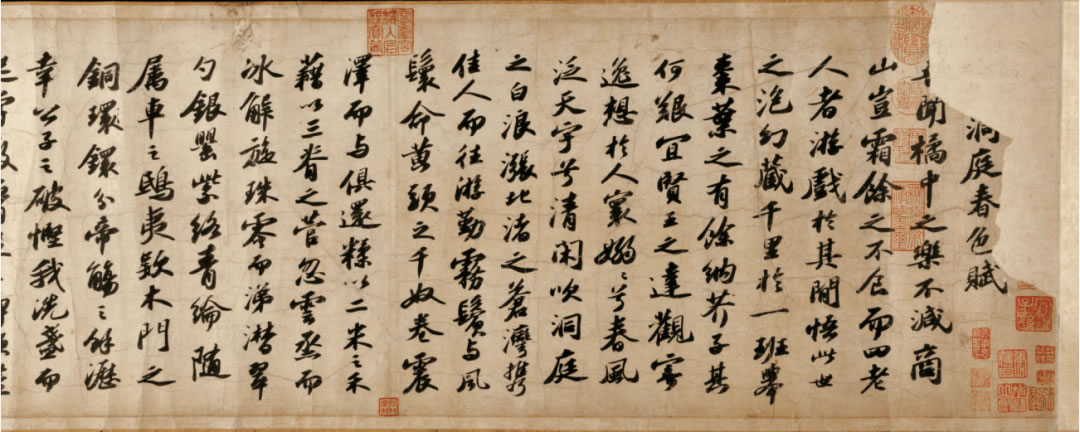 洞庭春色賦
聞橘中之樂不減商
山豈霜餘之不食而四老
人者游戲於其間悟此世
之泡幻藏千里於一班舉
棗葉之有餘納芥子其
何艱宜賢王之達觀寄
逸想於人寰嫋〻兮春風
泛天宇兮清閑吹洞庭
之白浪漲北渚之蒼灣携
佳人而往游勤霧鬢与風
鬟命黃頭之千奴卷震
澤而与俱還糅以二米之禾
藉以三脊之菅忽雲烝而
冰解旋珠零而涕潸翠
勺銀罌紫絡青綸随
属車之鴟夷款木門之
銅環鐶分帝觴之餘瀝
幸公子之破慳我洗盞而